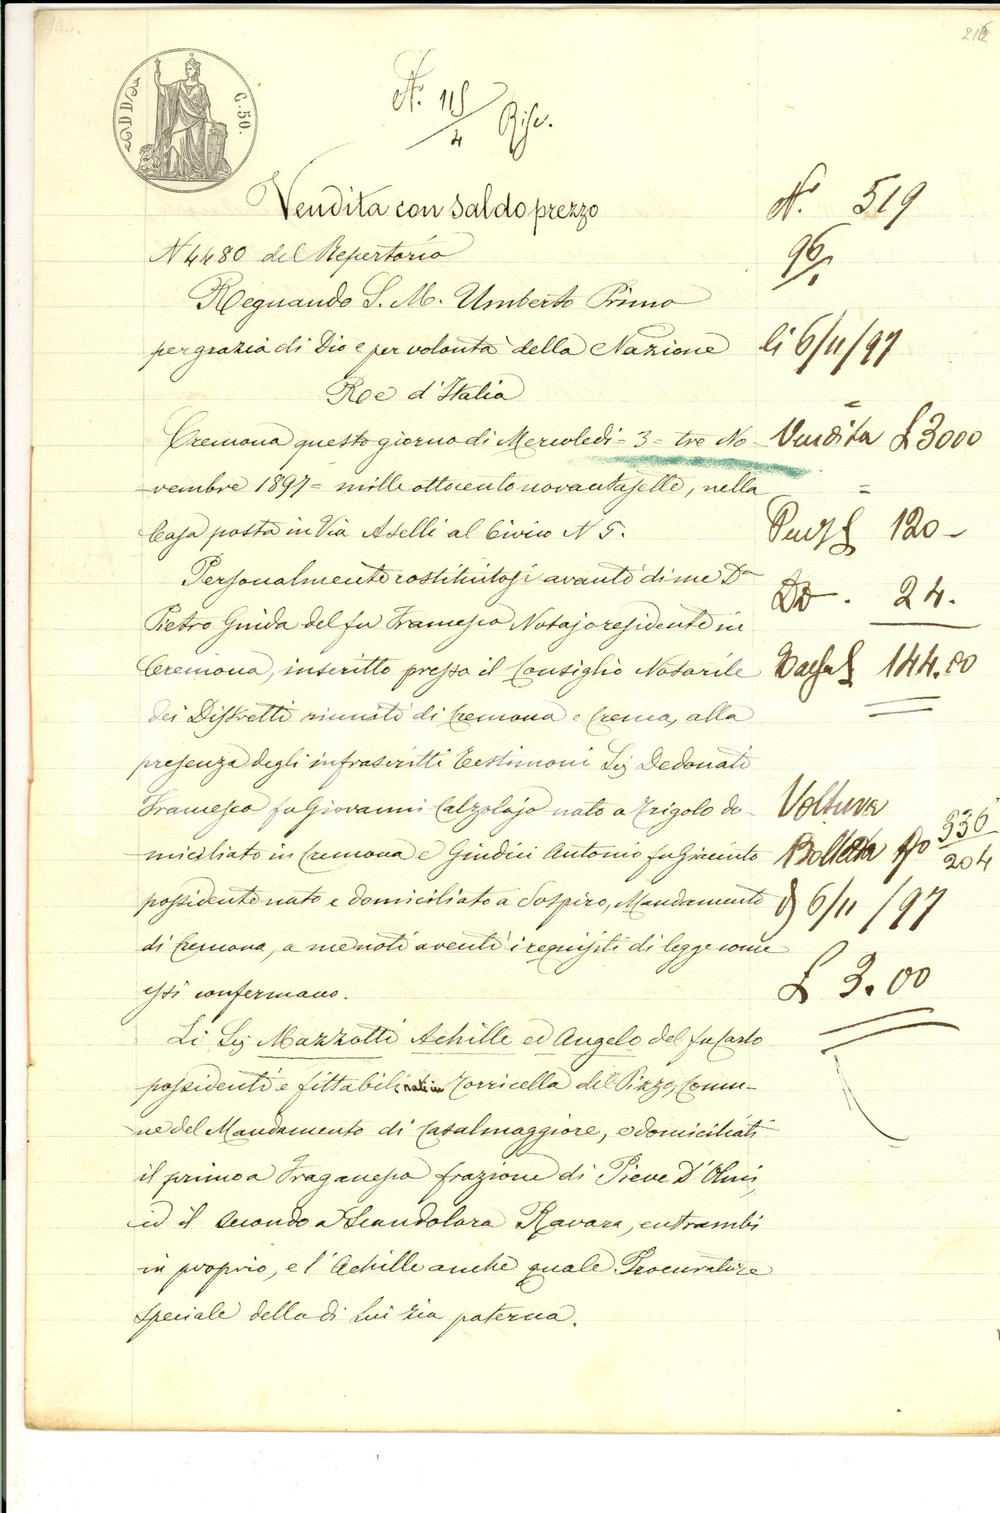 216
C. 50.
N. 115/4 Rise.
Vendita con saldo prezzo
N 4480 del Repertorio
Regnando S. M. Umberto Primo
per grazia di Dio e per volontà della Nazione
Re d'Italia
Cremona questo giorno di Mercoledi = 3 = tre No-
vembre 1897 = mille ottocento novantasette, nella
Casa posta in Via Aselli al Civico N 5.
Personalmente costituitosi avanti di me Dr
Pietro Guida del fu Francesco Notajo residente in
Cremona, inscritto presso il Consiglio Notarile
dei Distretti riuniti di Cremona e Crema, alla
presenza degli infrascritti Testimoni Sig Dedonati
Francesco fu Giovanni Calzolajo nato a Trigolo do-
miciliato in Cremona e Giudici Antonio fu Giacinto
possidente nato e domiciliato a Sospiro, Mandamento
di Cremona, a me noti aventi i requisiti di legge come
essi confermano.
Li Sig Mazzotti Achille ed Angelo del fu Carlo
possidenti e fittabili nati in Torricella del Pizzo, Comu-
ne del Mandamento di Casalmaggiore, e domiciliati
il primo a Fraganesco frazione di Pieve D'Olmi,
ed il secondo a Scandolara Ravara, entrambi
in proprio, e l'Achille anche quale Procuratore
speciale della di lui zia paterna.
N. 519
96/1
li 6/11/97
Vendita £ 3000
120 -
24.
Tassa £ 144.00
Voltura
Bolletta No 936/204
6/11/97
£ 3.00